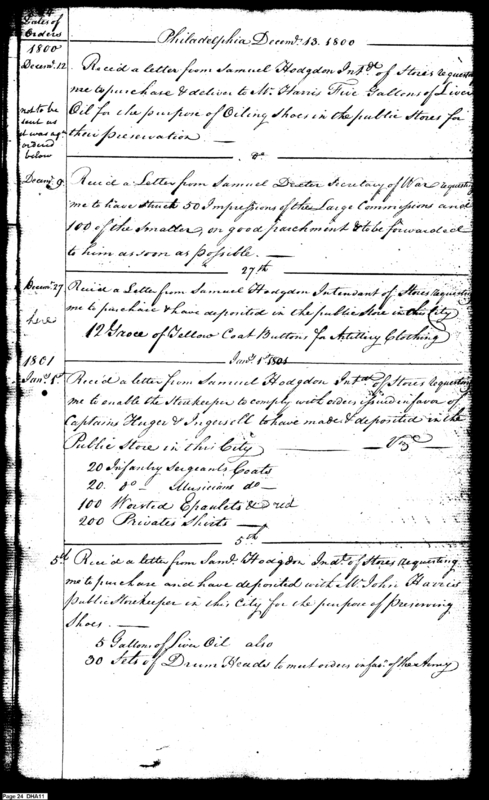 Dates of
Orders
Philadelphia Decemr. 13. 1800
1800
Decemr. 12
Reced a letter from Samuel Hodgdon Intdt. of Stores requesting
me to purchase & deliver to Mr. Harris Five Gallons of Liver
Oil for the purpose of Oiling Shoes in the public Stores for
their preservation —
not to be
sent as
it was agn
ordered
below
Do
Decemr. 9.
Reced a Letter from Samuel Dexter Secretary of War requesting
me to have Struck 50 Impressions of the Large Commissions and
100 of the Smaller, on good parchment & to be forwarded
to him as soon as possible. —
27th
Decemr. 27
Reced a Letter from Samuel Hodgdon Intendant of Stores requesting
me to purchase & have deposited in the public Store in the City
here
12 Groce of Yellow Coat Buttons for Artillery Clothing
1801
Jany. 1st 1801
Jany. 1st
Reced a letter from Samuel Hodgdon Intdt. of Stores requesting
me to enable the Storekeeper to comply with orders issued in favor of
Captains Huger & Ingersoll to have made & deposited in the
Public Store in this City — Vizt
20 Infantry Sergeants Coats
20. do — Musicians do —
100 Worsted Epaulets red
200 Privates Shirts —
5th
5th
Reced a letter from Saml. Hodgdon Indt. of Stores requesting
me to purchase and have deposited with Mr. John Harris
public Storekeeper in this City for the purpose of preserving
Shoes. —
5 Gallons of Liver Oil also
30 Sets of Drum Heads to meet orders in favr. of the Army
Page 24 DHA11